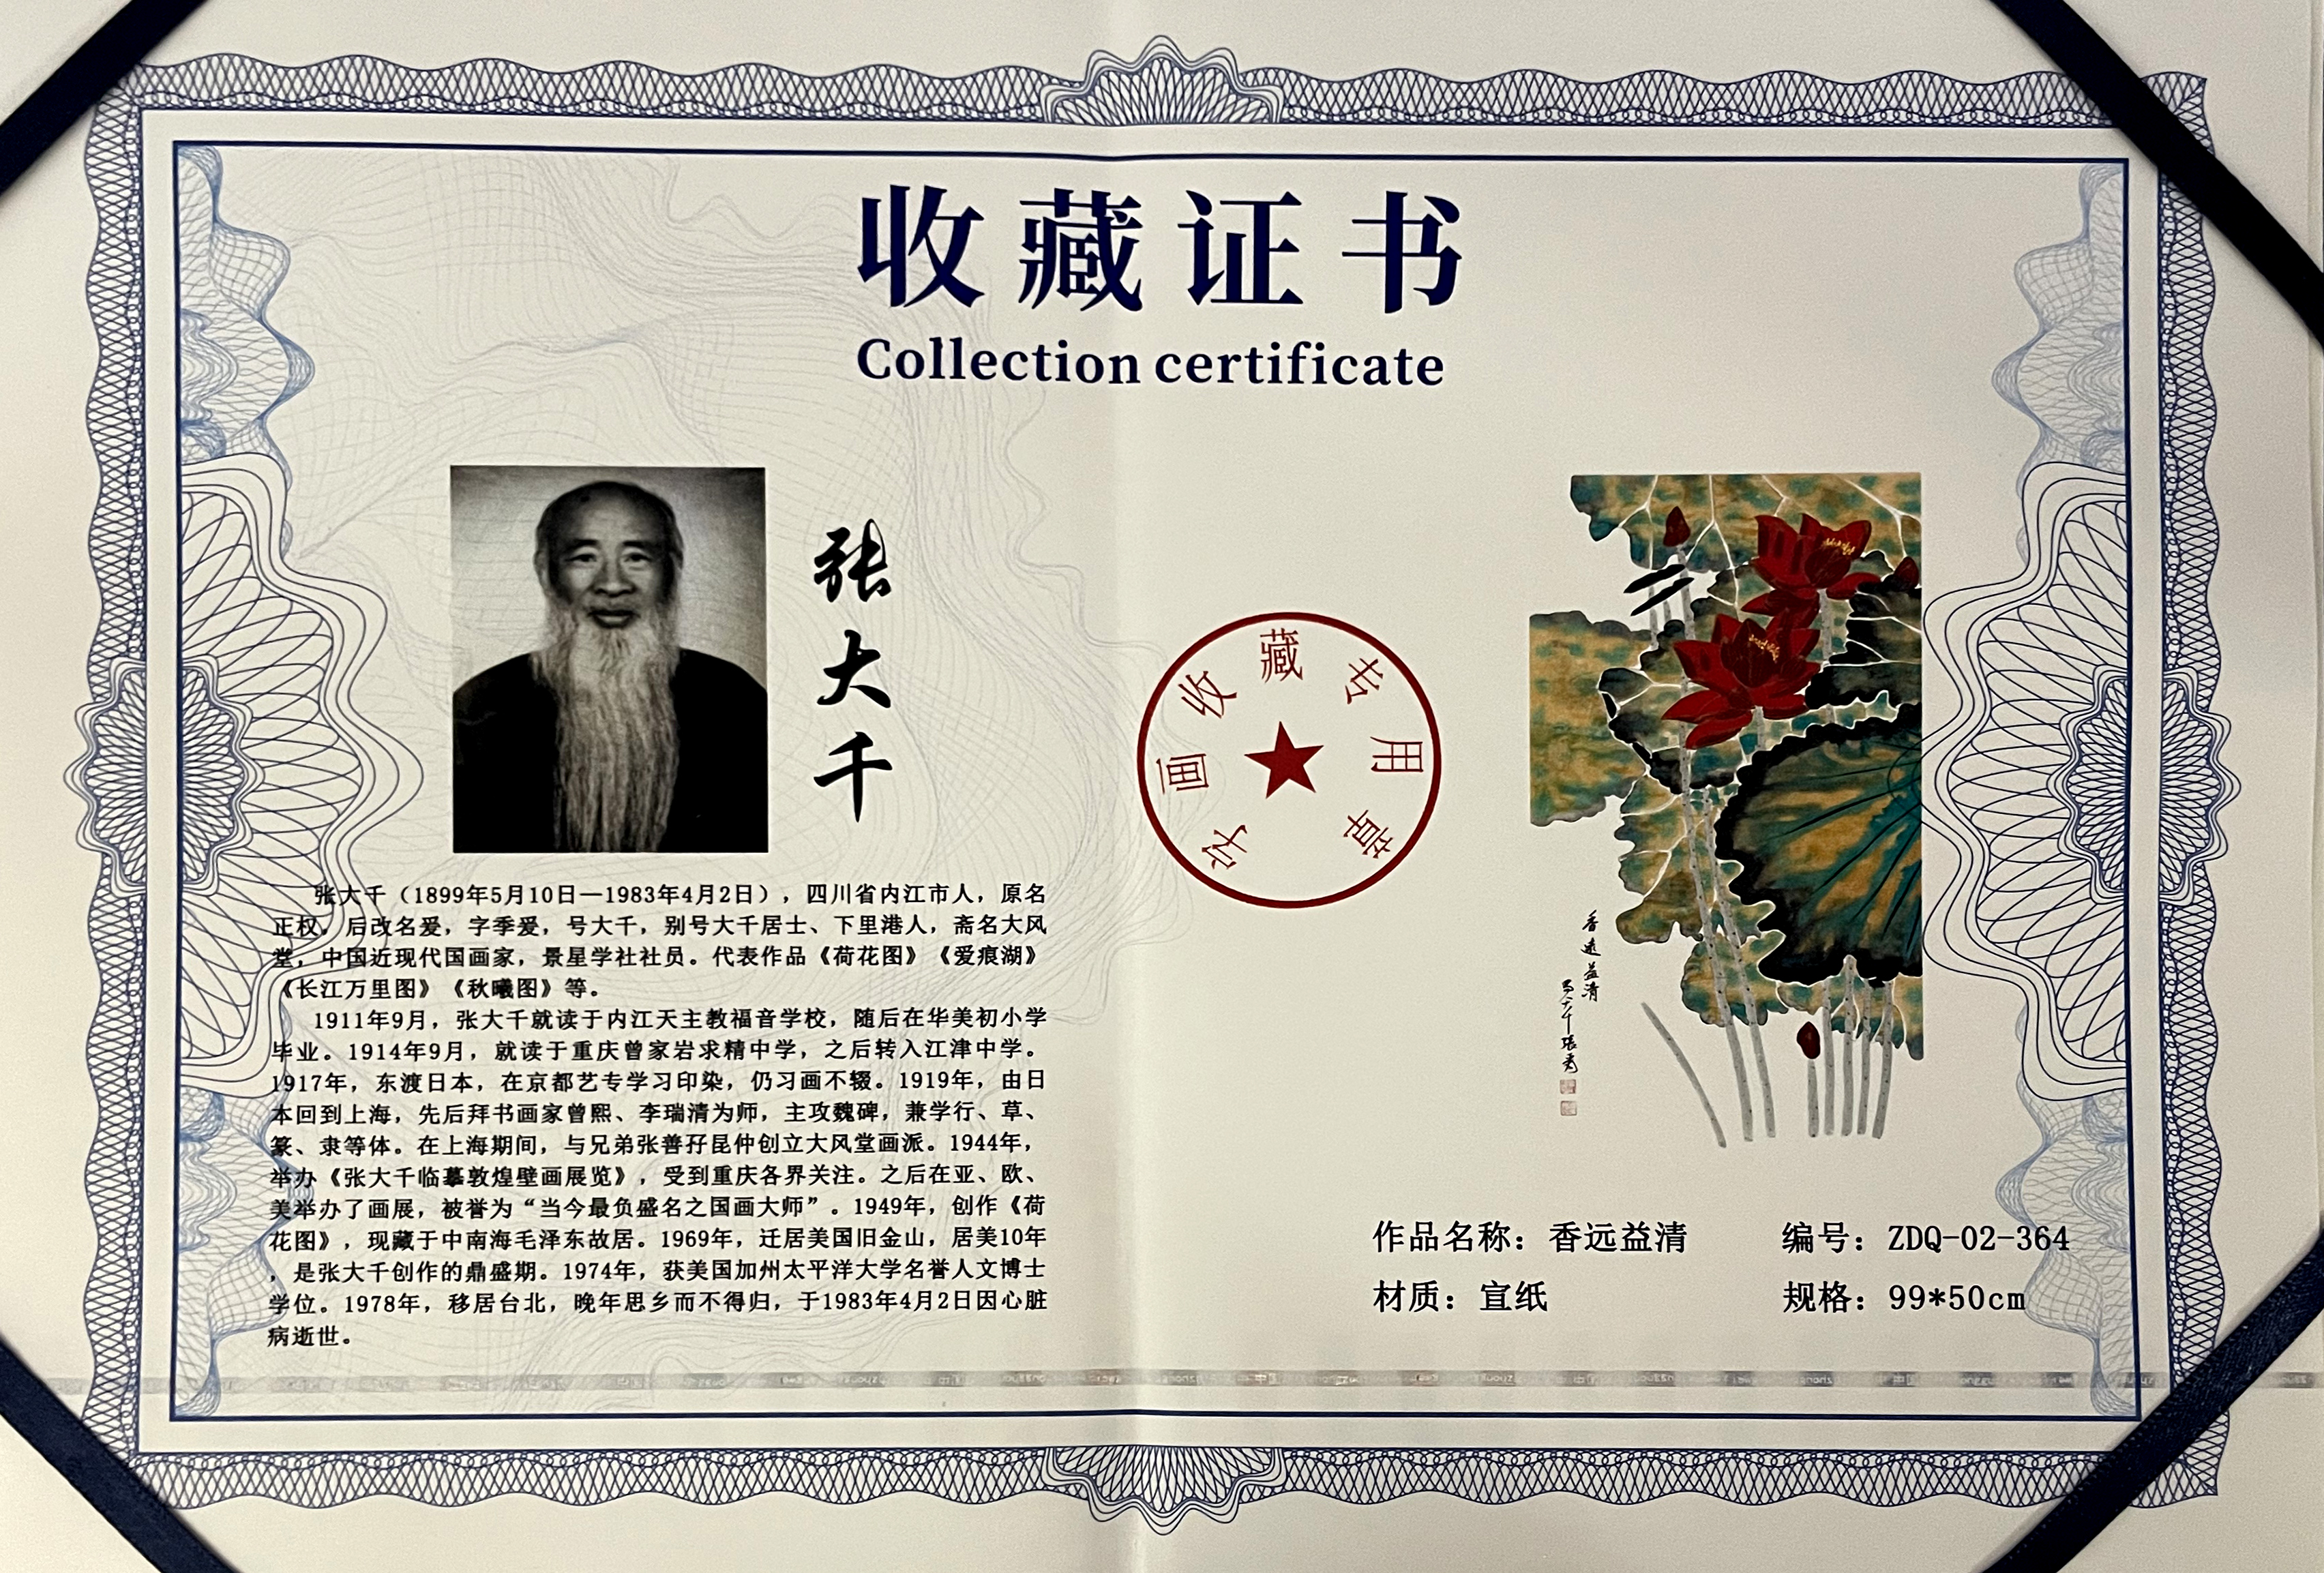 收藏证书
Collection certificate
张大千
张大千（1899年5月10日—1983年4月2日），四川省内江市人，原名
正权，后改名爰，字季爰，号大千，别号大千居士、下里港人，斋名大风
堂，中国近现代国画家，景星学社社员。代表作品《荷花图》《爱痕湖》
《长江万里图》《秋曦图》等。
1911年9月，张大千就读于内江天主教福音学校，随后在华美初小学
毕业。1914年9月，就读于重庆曾家岩求精中学，之后转入江津中学。
1917年，东渡日本，在京都艺专学习印染，仍习画不辍。1919年，由日
本回到上海，先后拜书画家曾熙、李瑞清为师，主攻魏碑，兼学行、草、
篆、隶等体。在上海期间，与兄弟张善孖昆仲创立大风堂画派。1944年，
举办《张大千临摹敦煌壁画展览》，受到重庆各界关注。之后在亚、欧、
美举办了画展，被誉为“当今最负盛名之国画大师”。1949年，创作《荷
花图》，现藏于中南海毛泽东故居。1969年，迁居美国旧金山，居美10年
，是张大千创作的鼎盛期。1974年，获美国加州太平洋大学名誉人文博士
学位。1978年，移居台北，晚年思乡而不得归，于1983年4月2日因心脏
病逝世。
字画收藏专用章
香遠益清
大千張爰
作品名称：香远益清
编号：ZDQ-02-364
材质：宣纸
规格：99*50cm